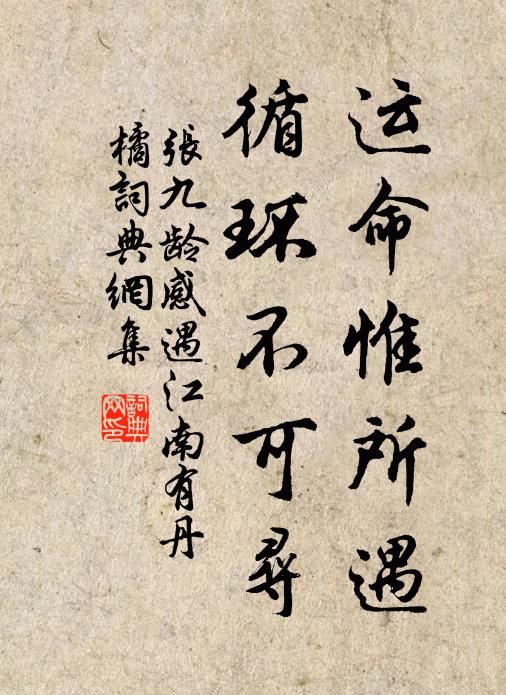 运命惟所遇
循环不可寻
張九龄感遇江南有丹
橘詞典網集
詞典网印